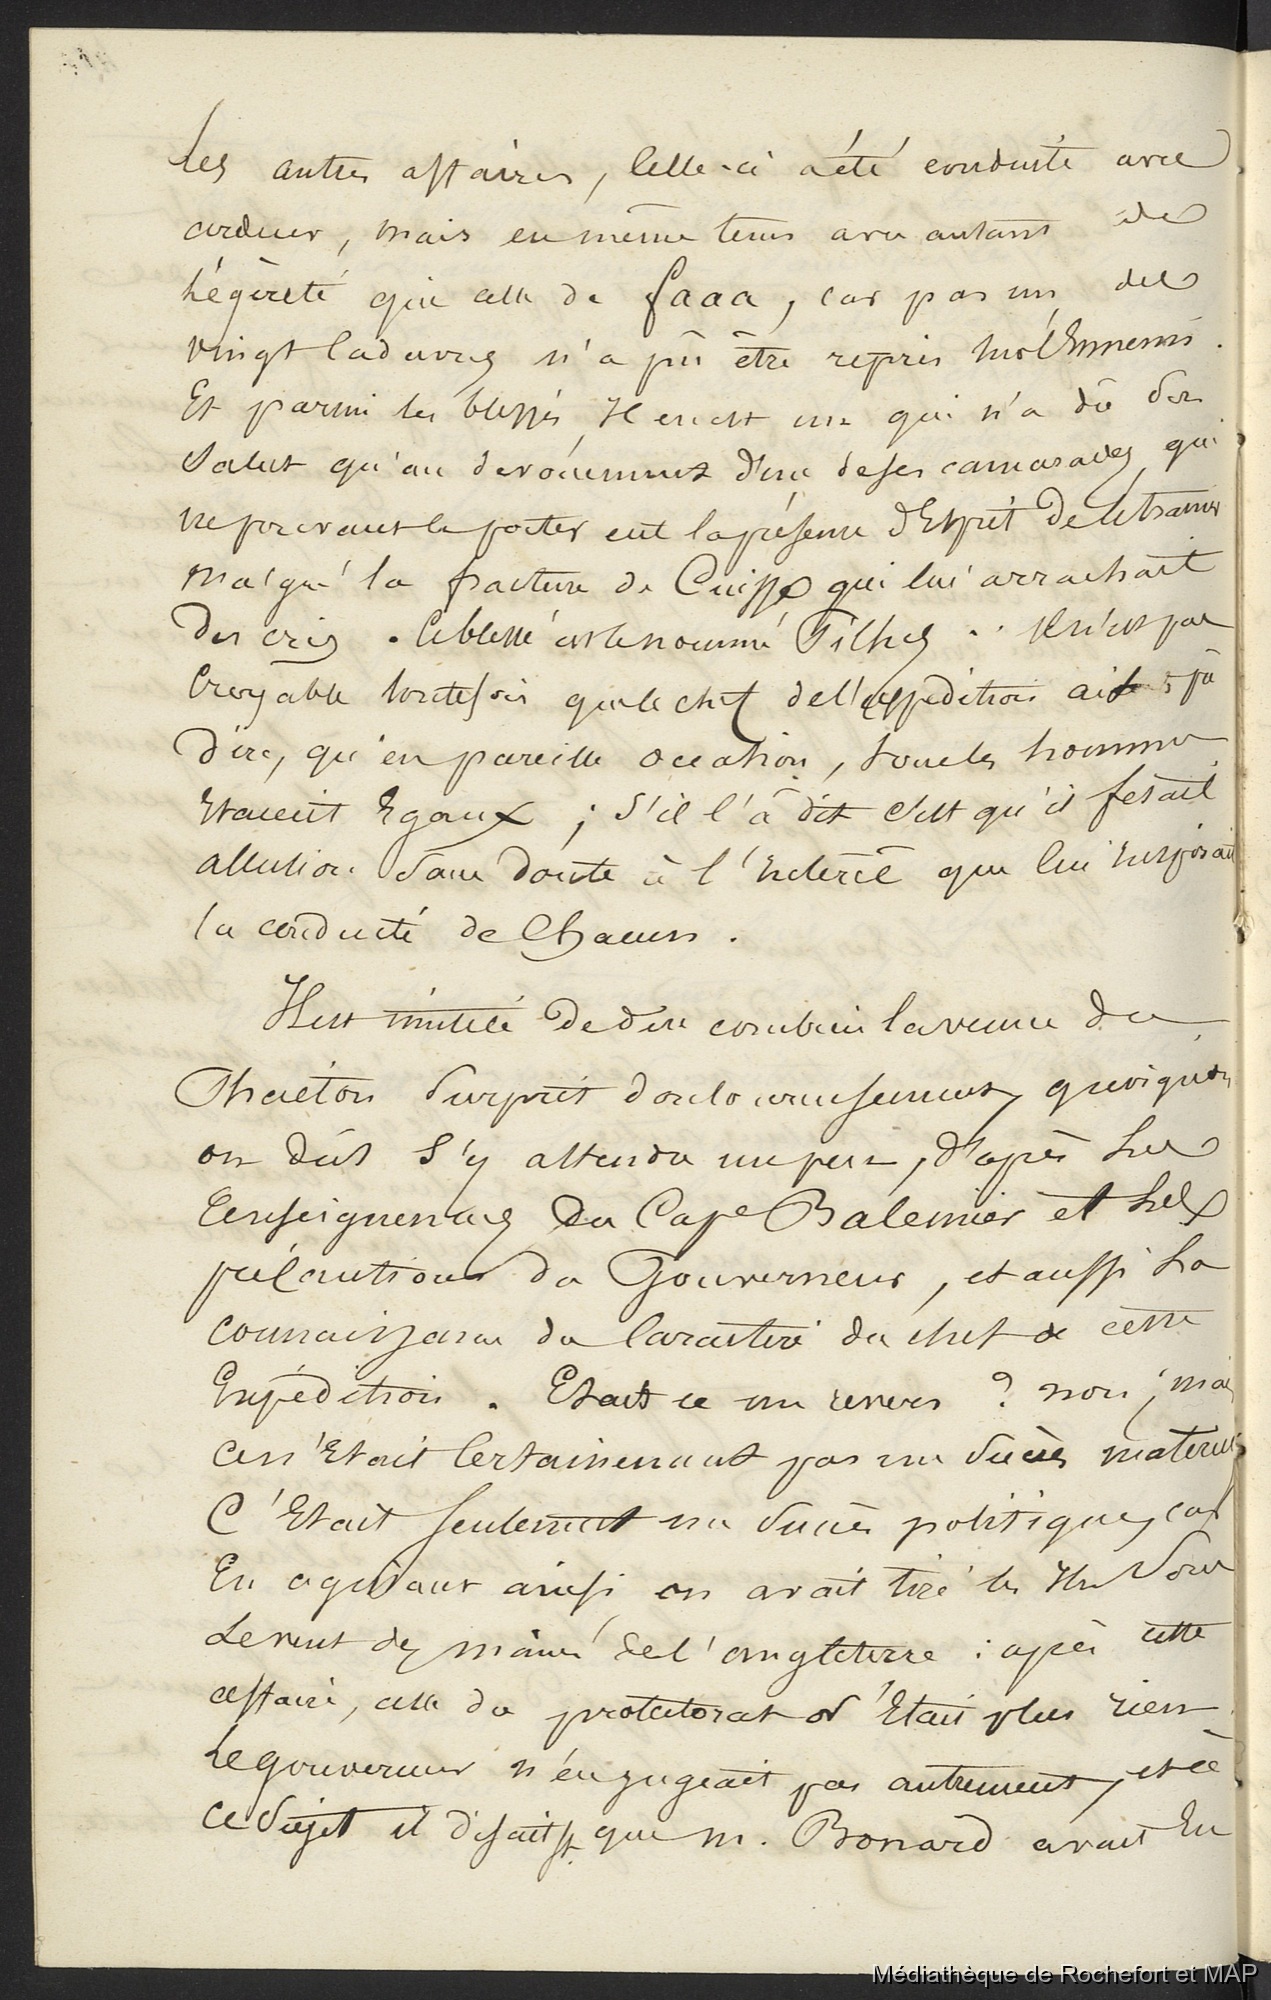 Les autres affaires, Celle-ci a été conduite avec
ardeur, mais en même tems avec autant de
légèreté que celle de faaa, car pas un des
vingt Cadavres n'a pû être repris sur l'Ennemis.
Et parmi les blessés, Il en est un qui n'a dû Son
Salut qu'au devouement d'un de ses camarades, qui
ne pouvant le porter eut la présence d'Esprit De le trainer
malgré la fracture de Cuisse qui lui arrachait
Des cris. Ce blessé est le nommé Pilhes. Il n'est pas
Croyable toutefois que le chef de l'expedition ait pû
dire, qu'en pareille occasion, tous les hommes
Etaient Egaux; S'il l'a dit c'est qu'il fesait
allusion Sans Doute à l'Intérêt que lui Inspirait
la conduite de Chacun.
Il est inutile De dire combien la venue du
Phaéton Surprit douloureusement, quoiqu'on
on dût S'y attendre un peu, d'après Les
Renseignemens du Cape Baleinier et Les
précautions du Gouverneur, et aussi La
connaissance du Caractère du chef de cette
Expédition. Etait ce un revers ? non, mais
ce n'Etait Certainement pas un Succès materiel
C'Etait Seulement un Succès politique, car
En agissant ainsi on avait tiré les Iles Sous
Le vent des mains de l'angleterre : après cette
affaire, celle du protectorat N'Etait plus rien
Le gouverneur n'en jugeait pas autrement, et à
ce Sujet il disait que M. Bonard avait En
Médiathèque de Rochefort et MAP